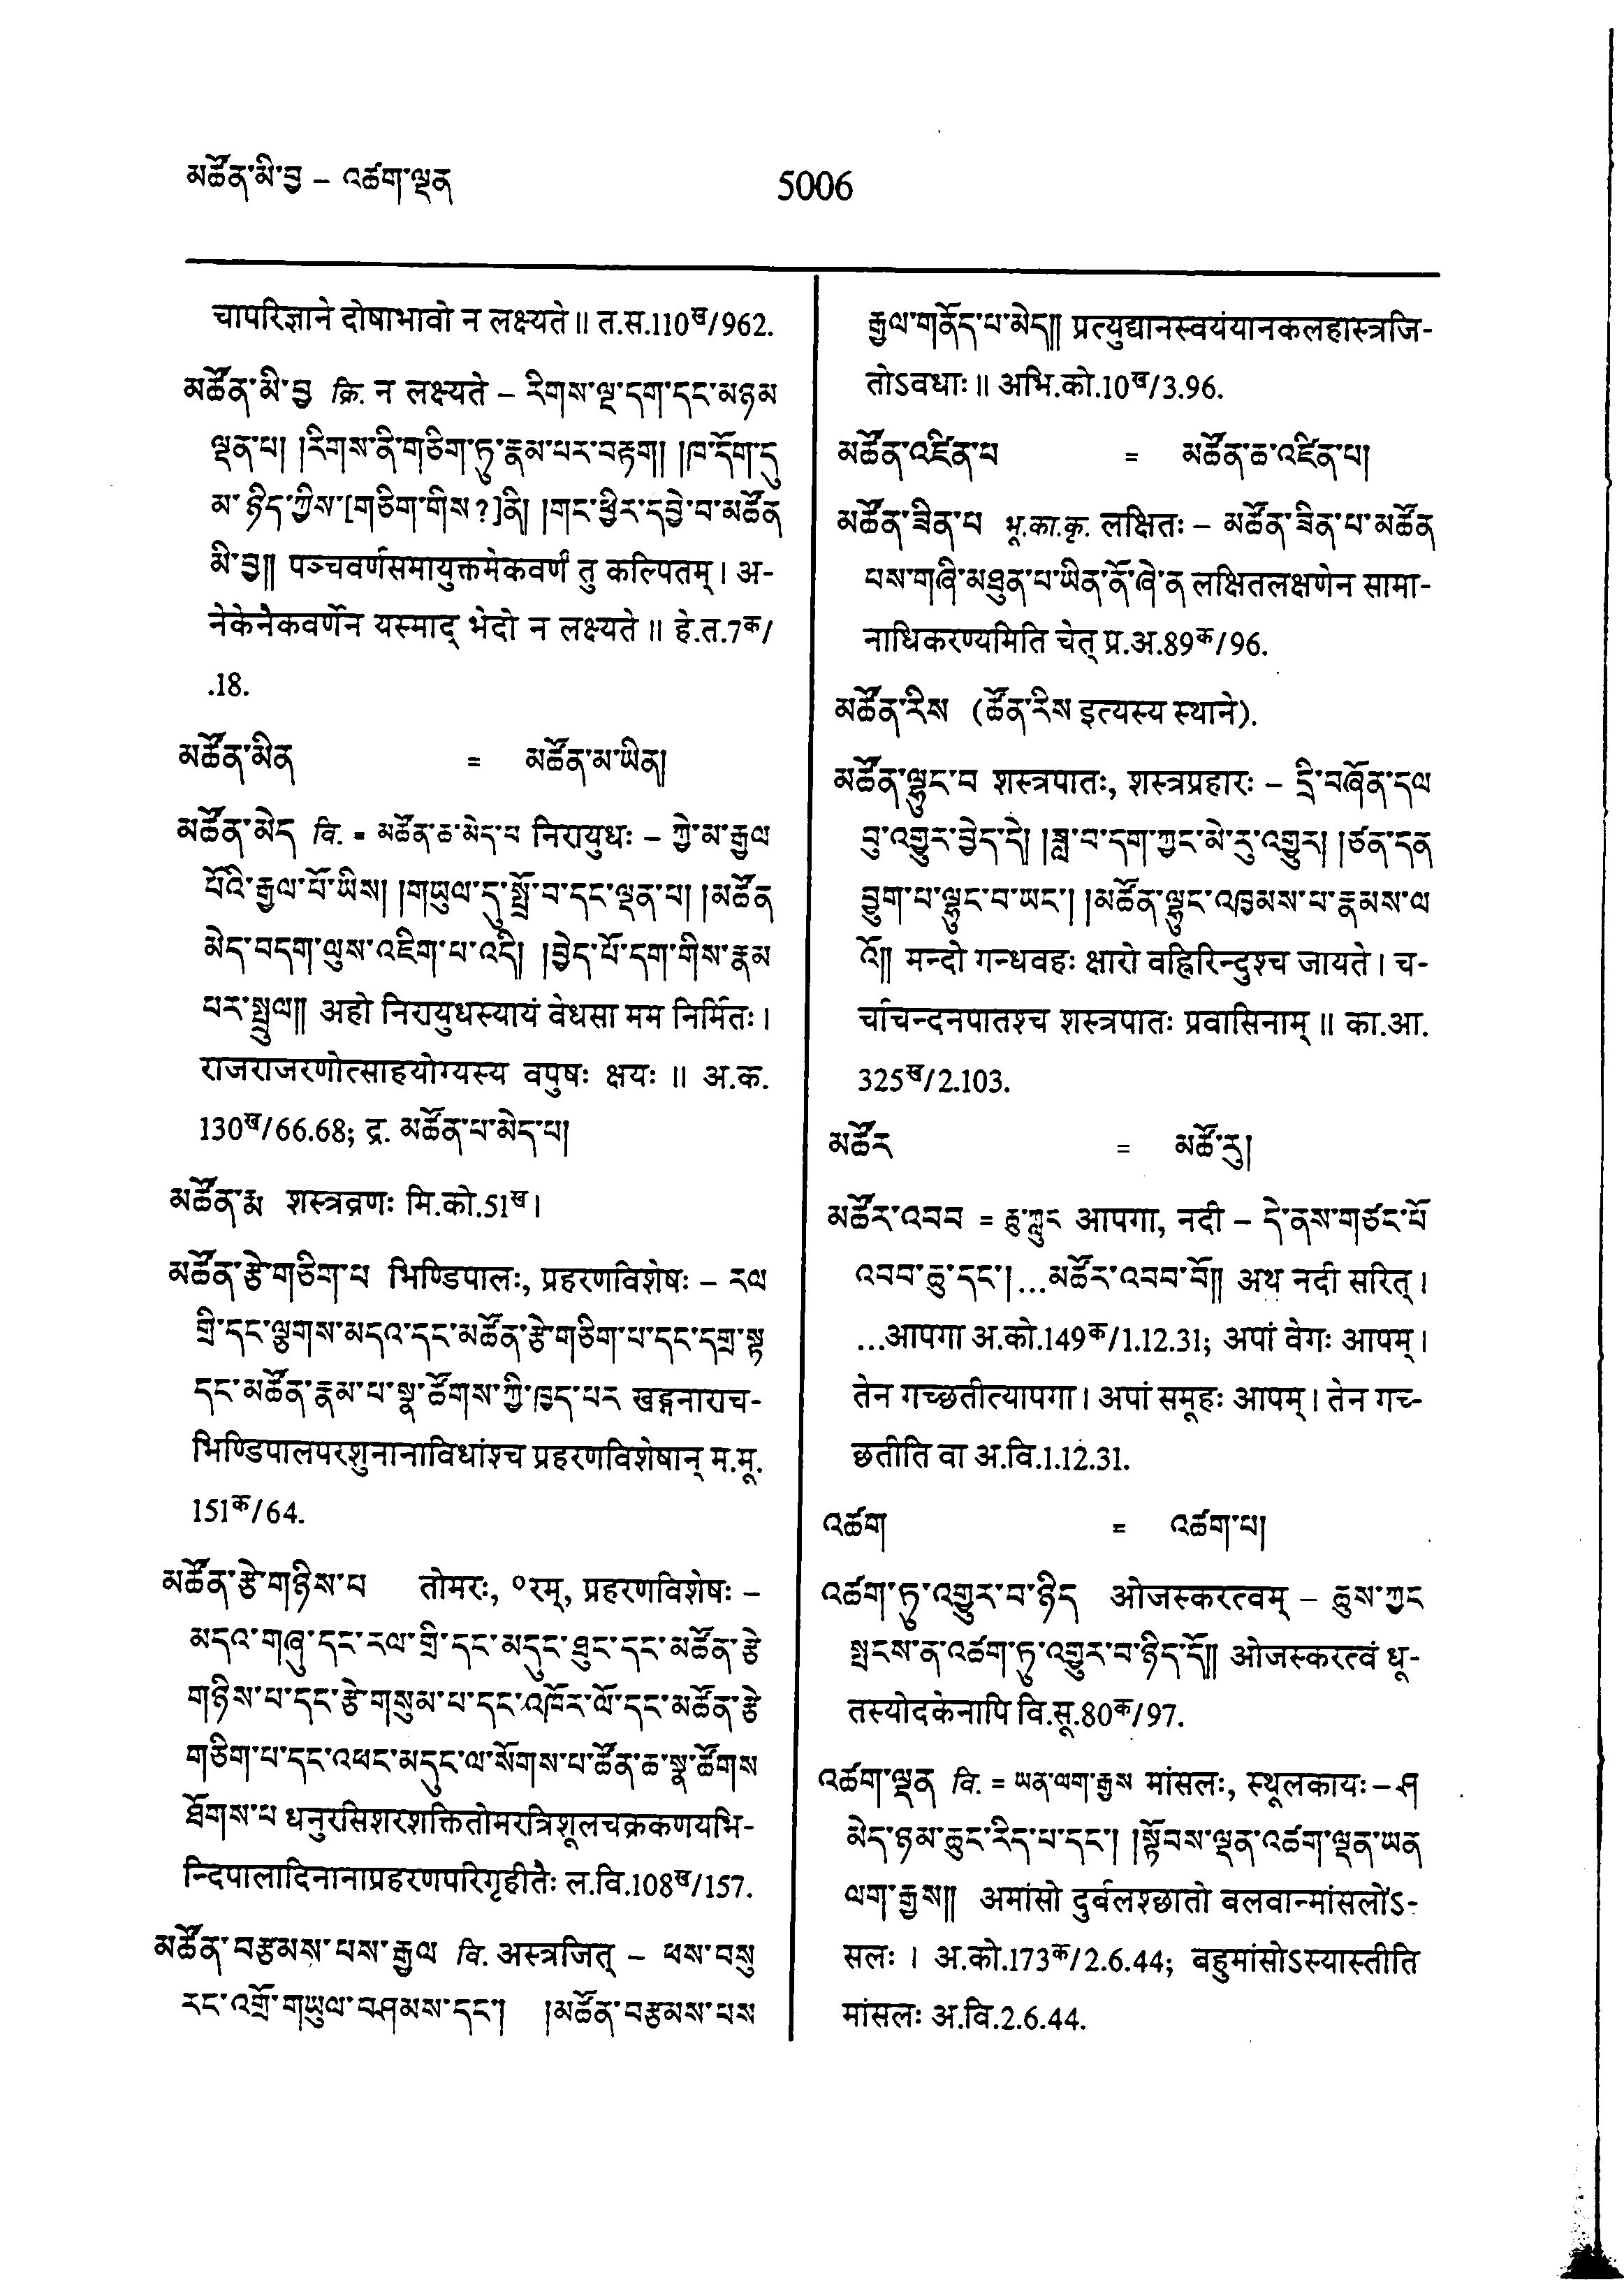 མཚོན་མི་བྱ – འཚག་ལྡན
5006
चापरिज्ञाने दोषाभावो न लक्ष्यते ॥ त.स.110ख/962.
མཚོན་མི་བྱ क्रि. न लक्ष्यते – རིགས་ལྔ་དག་དང་མཉམ
ལྡན་པ། །རིགས་ནི་གཅིག་ཏུ་རྣམ་པར་བརྟག། །ཁ་དོག་དུ
མ་ཉིད་ཀྱིས་[གཅིག་གིས་?]ནི། །གང་ཕྱིར་དབྱེ་བ་མཚོན
མི་བྱ།། पञ्चवर्णसमायुक्तमेकवर्णं तु कल्पितम् । अ-
नेकेनैकवर्णेन यस्माद् भेदो न लक्ष्यते ॥ हे.त.7क/
.18.
མཚོན་མིན = མཚོན་མ་ཡིན།
མཚོན་མེད वि. = མཚོན་ཆ་མེད་པ निरायुधः – ཀྱེ་མ་རྒྱལ
པོའི་རྒྱལ་པོ་ཡིས། །གཡུལ་དུ་སྤྲོ་བ་དང་ལྡན་པ། །མཚོན
མེད་བདག་ལུས་འཇིག་པ་འདི། །བྱེད་པོ་དག་གིས་རྣམ
པར་སྤྲུལ།། अहो निरायुधस्यायं वेधसा मम निर्मितः ।
राजराजरणोत्साहयोग्यस्य वपुषः क्षयः ॥ अ.क.
130ख/66.68; द्र. མཚོན་པ་མེད་པ།
མཚོན་རྨ शस्त्रव्रणः मि.को.51ख ।
མཚོན་རྩེ་གཅིག་པ भिण्डिपालः, प्रहरणविशेषः – རལ
གྲི་དང་ལྕགས་མདའ་དང་མཚོན་རྩེ་གཅིག་པ་དང་དགྲ་སྟ
དང་མཚོན་རྣམ་པ་སྣ་ཚོགས་ཀྱི་ཁྱད་པར खड्गनाराच-
भिण्डिपालपरशुनानाविधांश्च प्रहरणविशेषान् म.मू.
151क/64.
མཚོན་རྩེ་གཉིས་པ तोमरः, ०रम्, प्रहरणविशेषः –
མདའ་གཞུ་དང་རལ་གྲི་དང་མདུང་ཐུང་དང་མཚོན་རྩེ
གཉིས་པ་དང་རྩེ་གསུམ་པ་དང་འཁོར་ལོ་དང་མཚོན་རྩེ
གཅིག་པ་དང་འཕང་མདུང་ལ་སོགས་པ་ཚོན་ཆ་སྣ་ཚོགས
ཐོགས་པ धनुरसिशरशक्तितोमरत्रिशूलचक्रकणयभि-
न्दिपालादिनानाप्रहरणपरिगृहीतैः ल.वि.108ख/157.
མཚོན་བརྩམས་པས་རྒྱལ वि. अस्त्रजित् – ཕས་བསུ
རང་འགྲོ་གཡུལ་བཤམས་དང༌། །མཚོན་བརྩམས་པས
རྒྱལ་གནོད་པ་མེད།། प्रत्युद्यानस्वयंयानकलहास्त्रजि-
तोऽवधाः ॥ अभि.को.10ख/3.96.
མཚོན་འཛིན་པ = མཚོན་ཆ་འཛིན་པ།
མཚོན་ཟིན་པ भू.का.कृ. लक्षितः – མཚོན་ཟིན་པ་མཚོན
པས་གཞི་མཐུན་པ་ཡིན་ནོ་ཞེ་ན लक्षितलक्षणेन सामा-
नाधिकरण्यमिति चेत् प्र.अ.89क/96.
མཚོན་རིས (ཚོན་རིས इत्यस्य स्थाने).
མཚོན་ལྷུང་བ शस्त्रपातः, शस्त्रप्रहारः – དྲི་བཞོན་དལ
བུ་འགྱུར་བྱེད་དེ། །ཟླ་བ་དག་ཀྱང་མེ་རུ་འགྱུར། །ཙན་དན
བྱུག་པ་ལྷུང་བ་ཡང༌། །མཚོན་ལྷུང་འཁྱམས་པ་རྣམས་ལ
འོ།། मन्दो गन्धवहः क्षारो वह्निरिन्दुश्च जायते । च-
र्चाचन्दनपातश्च शस्त्रपातः प्रवासिनाम् ॥ का.आ.
325ख/2.103.
མཚོར = མཚོ་རུ།
མཚོར་འབབ = ཆུ་ཀླུང आपगा, नदी – དེ་ནས་གཙང་པོ
འབབ་ཆུ་དང༌།...མཚོར་འབབ་བོ།། अथ नदी सरित् ।
...आपगा अ.को.149क/1.12.31; अपां वेगः आपम् ।
तेन गच्छतीत्यापगा । अपां समूहः आपम् । तेन गच्-
छतीति वा अ.वि.1.12.31.
འཚག = འཚག་པ།
འཚག་ཏུ་འགྱུར་བ་ཉིད ओजस्करत्वम् – ཆུས་ཀྱང
སྤངས་ན་འཚག་ཏུ་འགྱུར་བ་ཉིད་དོ།། ओजस्करत्वं धू-
तस्योदकेनापि वि.सू.80क/97.
འཚག་ལྡན वि. = ཡན་ལག་རྒྱས मांसलः, स्थूलकायः – ཤ
མེད་ཉམ་ཆུང་རིད་པ་དང༌། །སྟོབས་ལྡན་འཚག་ལྡན་ཡན
ལག་རྒྱས།། अमांसो दुर्बलश्छातो बलवान्मांसलोंऽ-
सलः । अ.को.173क/2.6.44; बहुमांसोऽस्यास्तीति
मांसलः अ.वि.2.6.44.